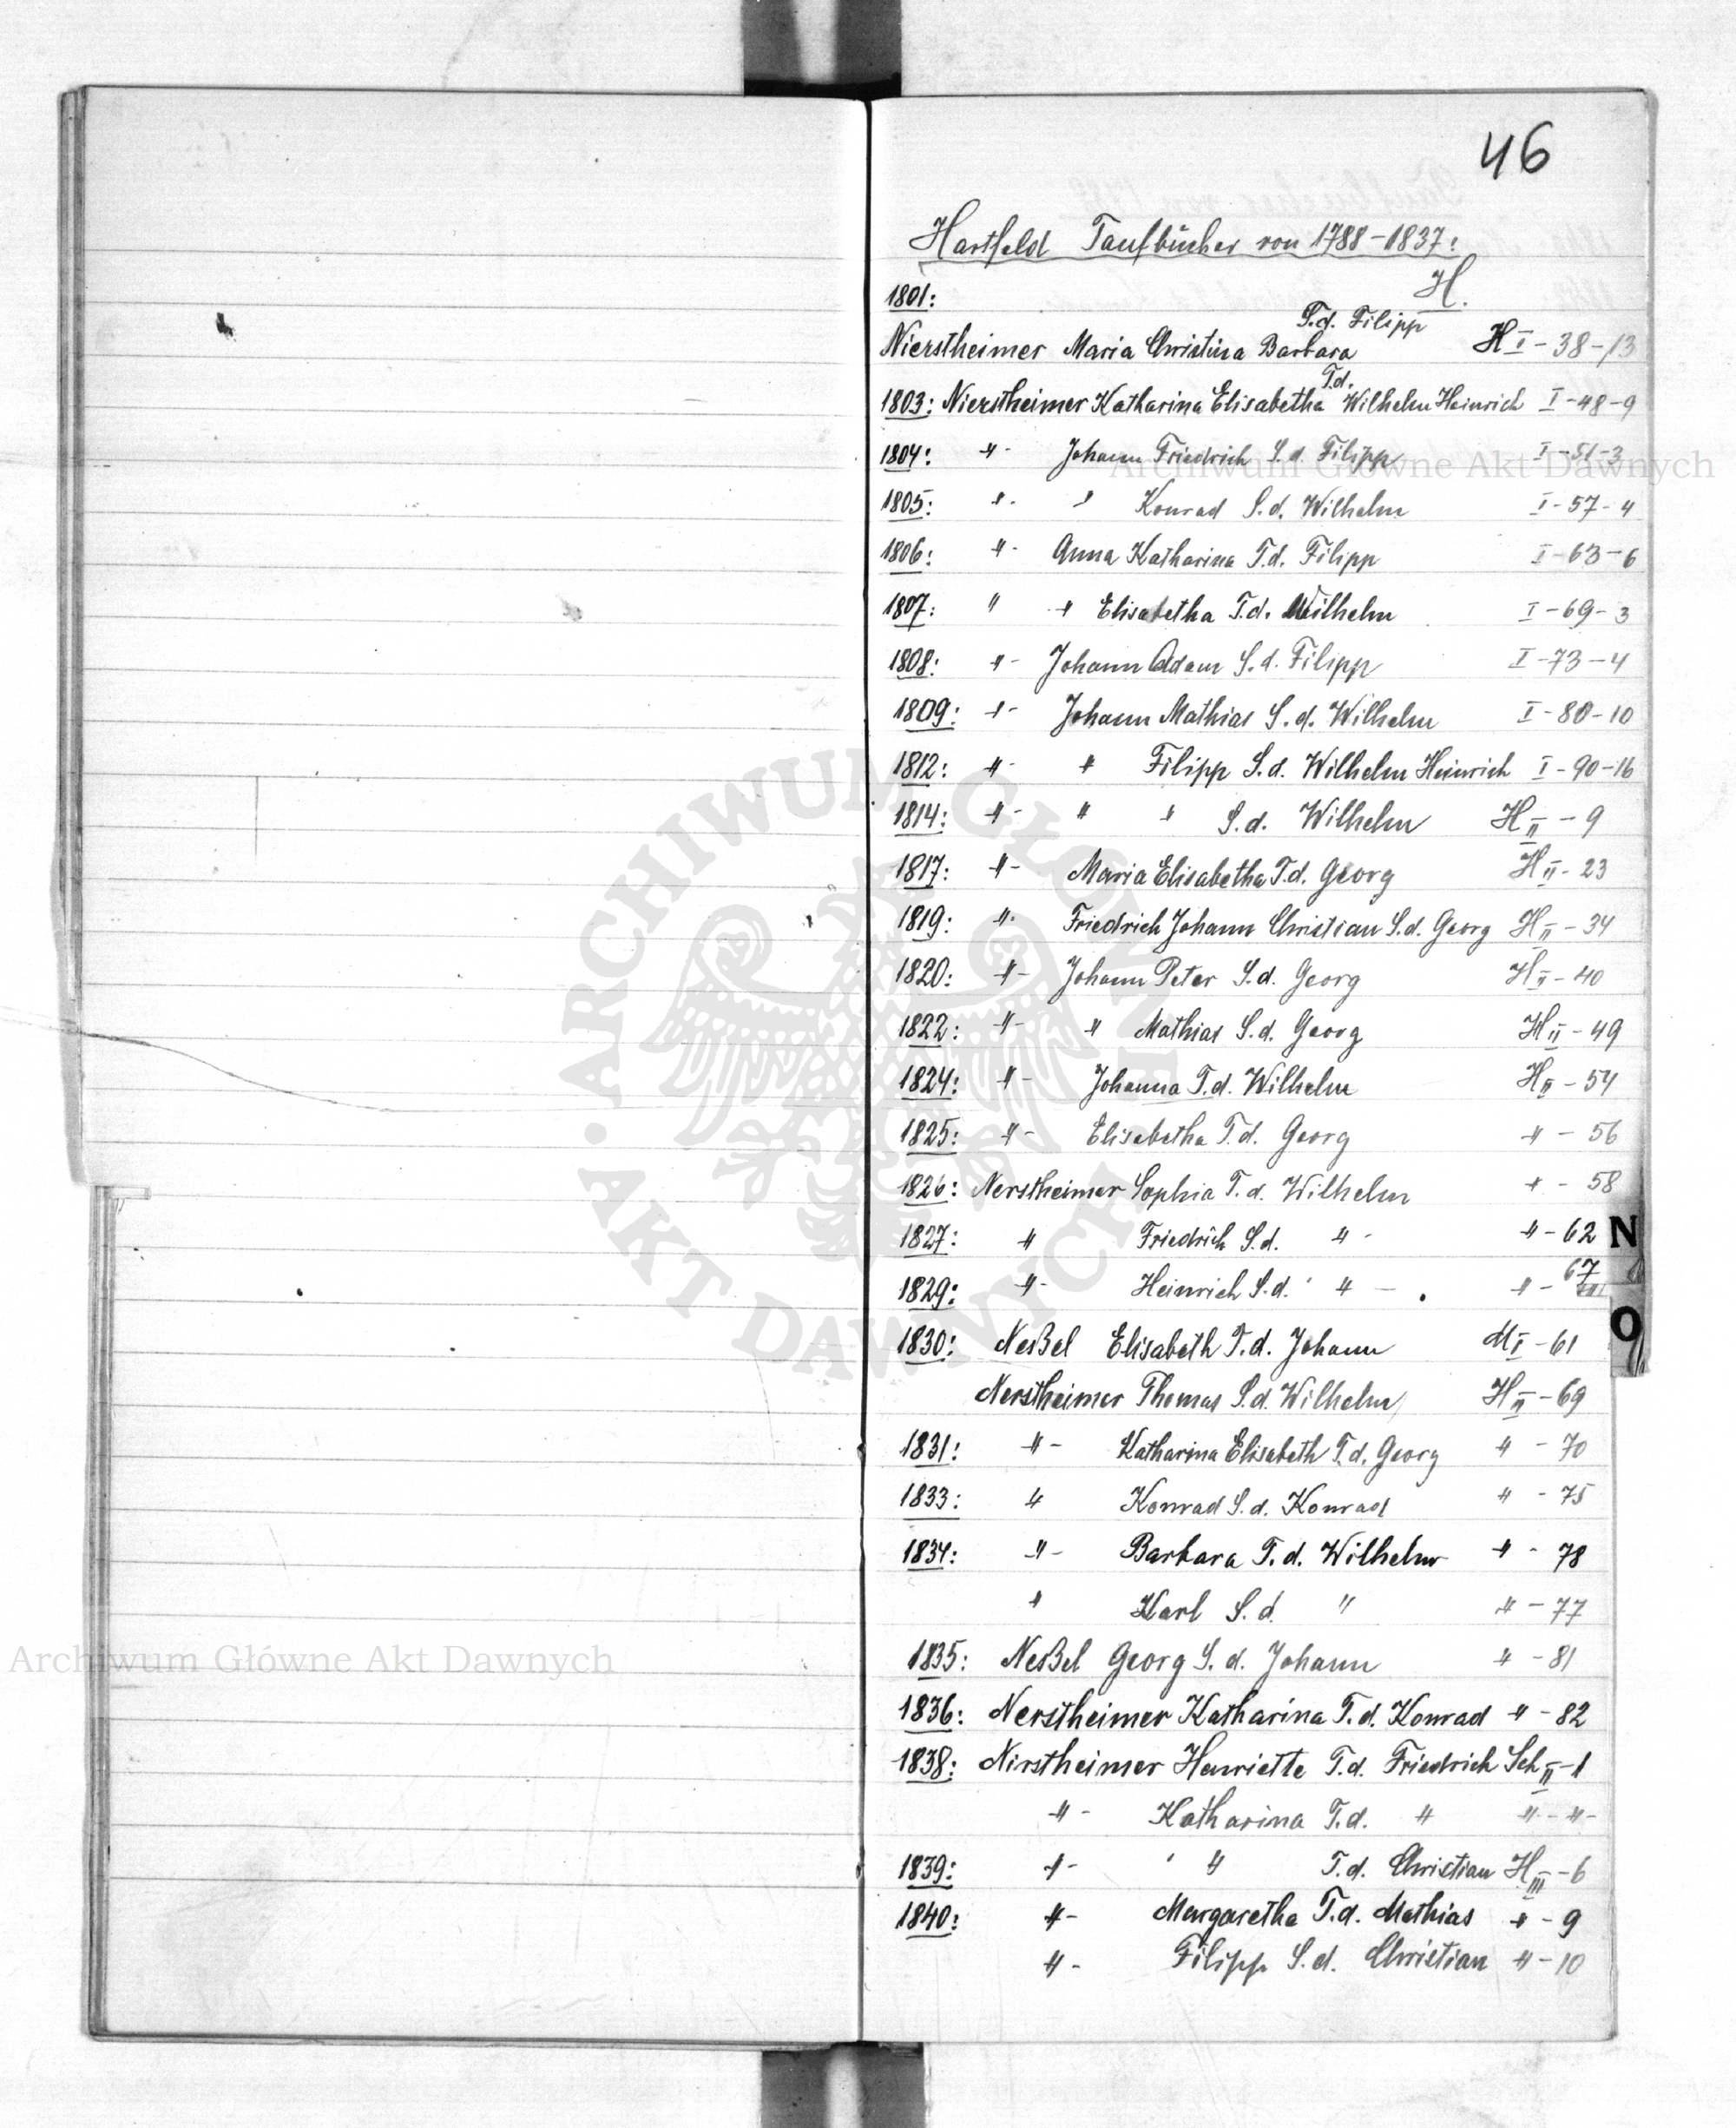 46
Hartfeld Taufbücher von 1788-1837:
H.
1801:
T.d. Filipp
Nierstheimer Maria Christina Barbara H I - 38 - 13
1803: Nierstheimer Katharina Elisabetha T.d. Wilhelm Heinrich I - 48 - 9
1804: -"- Johann Friedrich S.d. Filipp I - 51 - 3
Archiwum Główne Akt Dawnych
1805: " - " Konrad S.d. Wilhelm I - 57 - 4
1806: " - Anna Katharina T.d. Filipp I - 63 - 6
1807: " " Elisabetha T.d. Wilhelm I - 69 - 3
1808: " - Johann Adam S.d. Filipp I - 73 - 4
1809: -"- Johann Mathias S.d. Wilhelm I - 80 - 10
1812: -"- " Filipp S.d. Wilhelm Heinrich I - 90 - 16
1814: -"- " " S.d. Wilhelm H II - 9
1817: -"- Maria Elisabetha T.d. Georg H II - 23
1819: -"- Friedrich Johann Christian S.d. Georg H II - 34
1820: -"- Johann Peter S.d. Georg H II - 40
1822: -"- " Mathias S.d. Georg H II - 49
1824: -"- Johanna T.d. Wilhelm H II - 54
1825: -"- Elisabetha T.d. Georg -"- 56
1826: Nerstheimer Sophia T.d. Wilhelm " - 58
1827: " Friedrich S.d. " - -"- 62
N
1829: -"- Heinrich S.d. " - -"- 67
O
1830: Neßel Elisabeth T.d. Johann M I - 61
Nerstheimer Thomas S.d. Wilhelm H II - 69
1831: -"- Katharina Elisabeth T.d. Georg " - 70
1833: " Konrad S.d. Konrad " - 75
1834: -"- Barbara T.d. Wilhelm " - 78
" Karl S.d. " -"- 77
1835: Neßel Georg S.d. Johann " - 81
Archiwum Główne Akt Dawnych
1836: Nerstheimer Katharina T.d. Konrad " - 82
1838: Nirstheimer Henriette T.d. Friedrich Sch II - 1
-"- Katharina T.d. " -"-"-
1839: -"- " T.d. Christian H III - 6
1840: -"- Margaretha T.d. Mathias " - 9
" - Filipp S.d. Christian " - 10
ARCHIWUM GŁÓWNE · AKT DAWNYCH ·